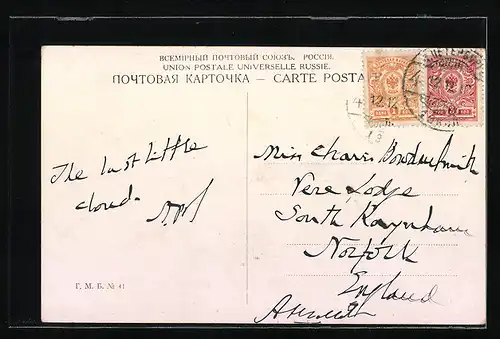 ВСЕМІРНЫЙ ПОЧТОВЫЙ СОЮЗЪ. РОССІЯ.
UNION POSTALE UNIVERSELLE RUSSIE.
ПОЧТОВАЯ КАРТОЧКА — CARTE POSTA
The last little
cloud.
Miss
Vere Lodge
South Raynham
Norfolk
England
Англія
Г. М. Б. № 41